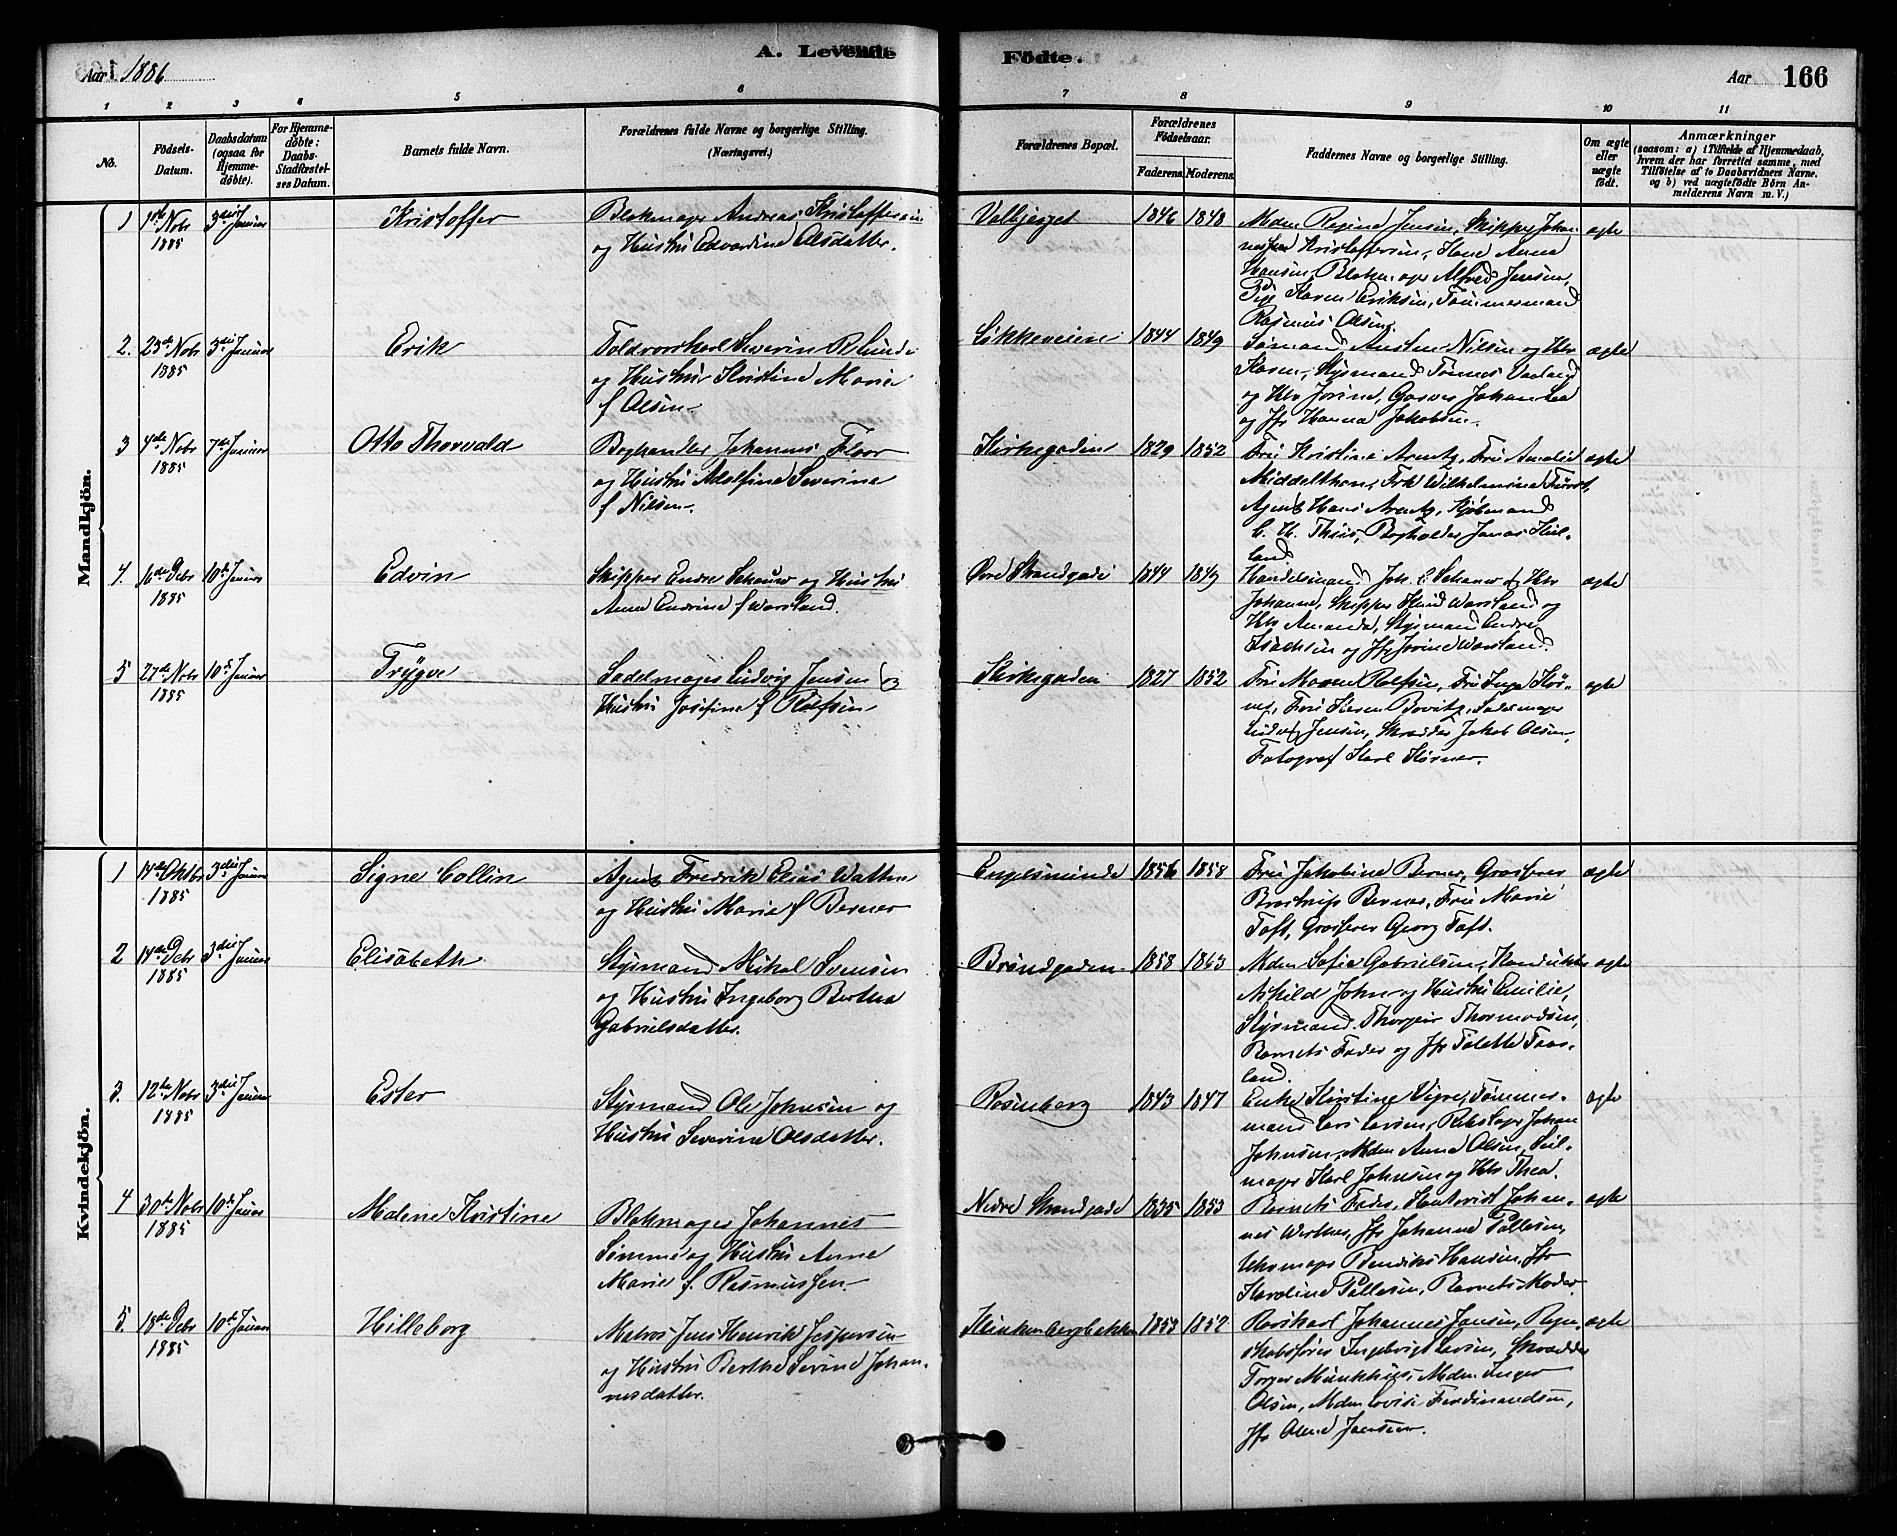 A. Levende Födte.
Aar 1886
Aar 166
1 2 3 4 5 6 7 8 9 10 11
No.
Födsels-Datum.
Daabsdatum (ogsaa for Hjemme-döbte).
For Hjemme-döbte: Daabs-Stadfæstelses Datum.
Barnets fulde Navn.
Forældrenes fulde Navne og borgerlige Stilling. (Næringsvei.)
Forældrenes Bopæl.
Forældrenes Födselsaar.
Faderens. Moderens.
Faddernes Navne og borgerlige Stilling.
Om ægte eller uægte födt.
Anmærkninger
(saasom: a) i Tilfælde af Hjemmedaab, hvem der har forrettet samme, med Tilföielse af to Daabsvidners Navne. og b) ved uægtefödte Börn Anmelderens Navn m. V.)
Mandkjön.
1 1ste Nobr 1885 3die Januar Kristoffer
Blokmager Andreas Kristoffersen
og Hustru Edvardine Olsdatter.
Valbjerget 1846 1848
Mdm Regine Jensen, Skipper Johannes
Kristoffersen, Kone Anna
Hansen, Blokmager Alfred Jensen,
Pige Karen Eriksen, Tømmermand
Rasmus Olsen.
ægte
2. 23de Nobr 1885 3die Januar Erik
Toldvorskarl Severin
og Hustru Kristine Marie
f Olsen
Løkkeveien 1844 1849
Sømand Austen Nilsen og Hr
Karen, Styrmand Tønnes
og Hr Jorine, Johan Lea
og Jfr Hanna Jakobsen.
ægte
3 4de Nobr 1885 7de Januar Otto Thorvald
Boghandler Johannes Floor
og Hustru Adolfine Severine
f Nilsen.
Kirkegaden 1829 1852
Fru Kristine Arentz, Fru Amalie
Middelthon, Frk Wilhelmine Fürst,
Agent Hans Arentz, Kjøbmand
C. Th. Thiis, Bogholder Jonas Kielland
ægte
4. 16de Debr 1885 10de Januar Edvin
Skipper Endre Schauw og Hustru
Anna Endrine f Warsland.
Øvre Strandgade 1844 1849
Handelsmand Joh. C Schauw og Hr
Johanne, Skipper Knud Warsland og
Hr Amanda, Styrmand Endre
Isachsen og Jfr Jorine Warsland.
ægte
5 27de Nobr 1885 10de Januar Trygve
Sadelmager Ludvig Jensen og
Hustru Josefine f Rolfsen
Kirkegaden 1827 1852
Fru Maren Rolfsen, Fru Inga Kørner,
Fru Berovitz, Sadelmager
Ludvig Jensen, Skrædder Jakob Olsen,
Fotograf Karl Kørner.
ægte
Kvindekjön.
1 14de Oktbr 1885 3die Januar Signe Collin
Agent Fredrik Elias Watne
og Hustru Marie f Berner
Engelsminde 1856 1858
Fru Jakobine Berner, Grosserer
Brostrup Berner, Fru Marie
Toft, Grosserer Georg Toft.
ægte
2 14de Debr 1885 3die Januar Elisabeth
Styrmand Mikal Svensen
og Hustru Ingeborg Bertha
Gabrielsdatter.
Brøndgaden 1858 1863
Mdm Sofie Gabrielsen,
Askild John og Hustru Emilie,
Styrmand Thorgeir Thormodsen,
Barnets Fader og Jfr Tolette Taasland.
ægte
3. 12te Nobr 1885 3die Januar Ester
Styrmand Ole Johnsen og
Hustru Severine Olsdatter.
Rosenberg 1843 1847
Enke Kristine Vigre, Tømmermand
Lars Larsen, Rebslager Johan
Johnsen, Mdm Anna Olsen, Seilmager
Karl Johnsen og Hr Thea.
ægte
4 30te Nobr 1885 10de Januar Malene Kristine
Blokmager Johannes
Sømme og Hustru Anne
Marie f. Rasmussen.
Nedre Strandgade 1835 1853
Barnets Fader, Kontorist Johannes
Werther, Jfr Johanne Pallesen,
Uhrmager Bendiks Hansen, Jfr
Karoline Pallesen, Barnets Moder.
ægte
5. 18de Debr 1885 10de Januar Hilleborg
Matros Jens Henrik Jespersen
og Hustru Berthe Serine Johannesdatter.
Klinkenbergbakken 1853 1852
Rorskarl Johannes Jansen, Regnskabsfører
Ingebrigt Larsen, Skrædder
Torger Munkhus, Mdm Inger
Olsen, Mdm Lovise Ferdinandsen,
Jfr Olene Joensen.
ægte